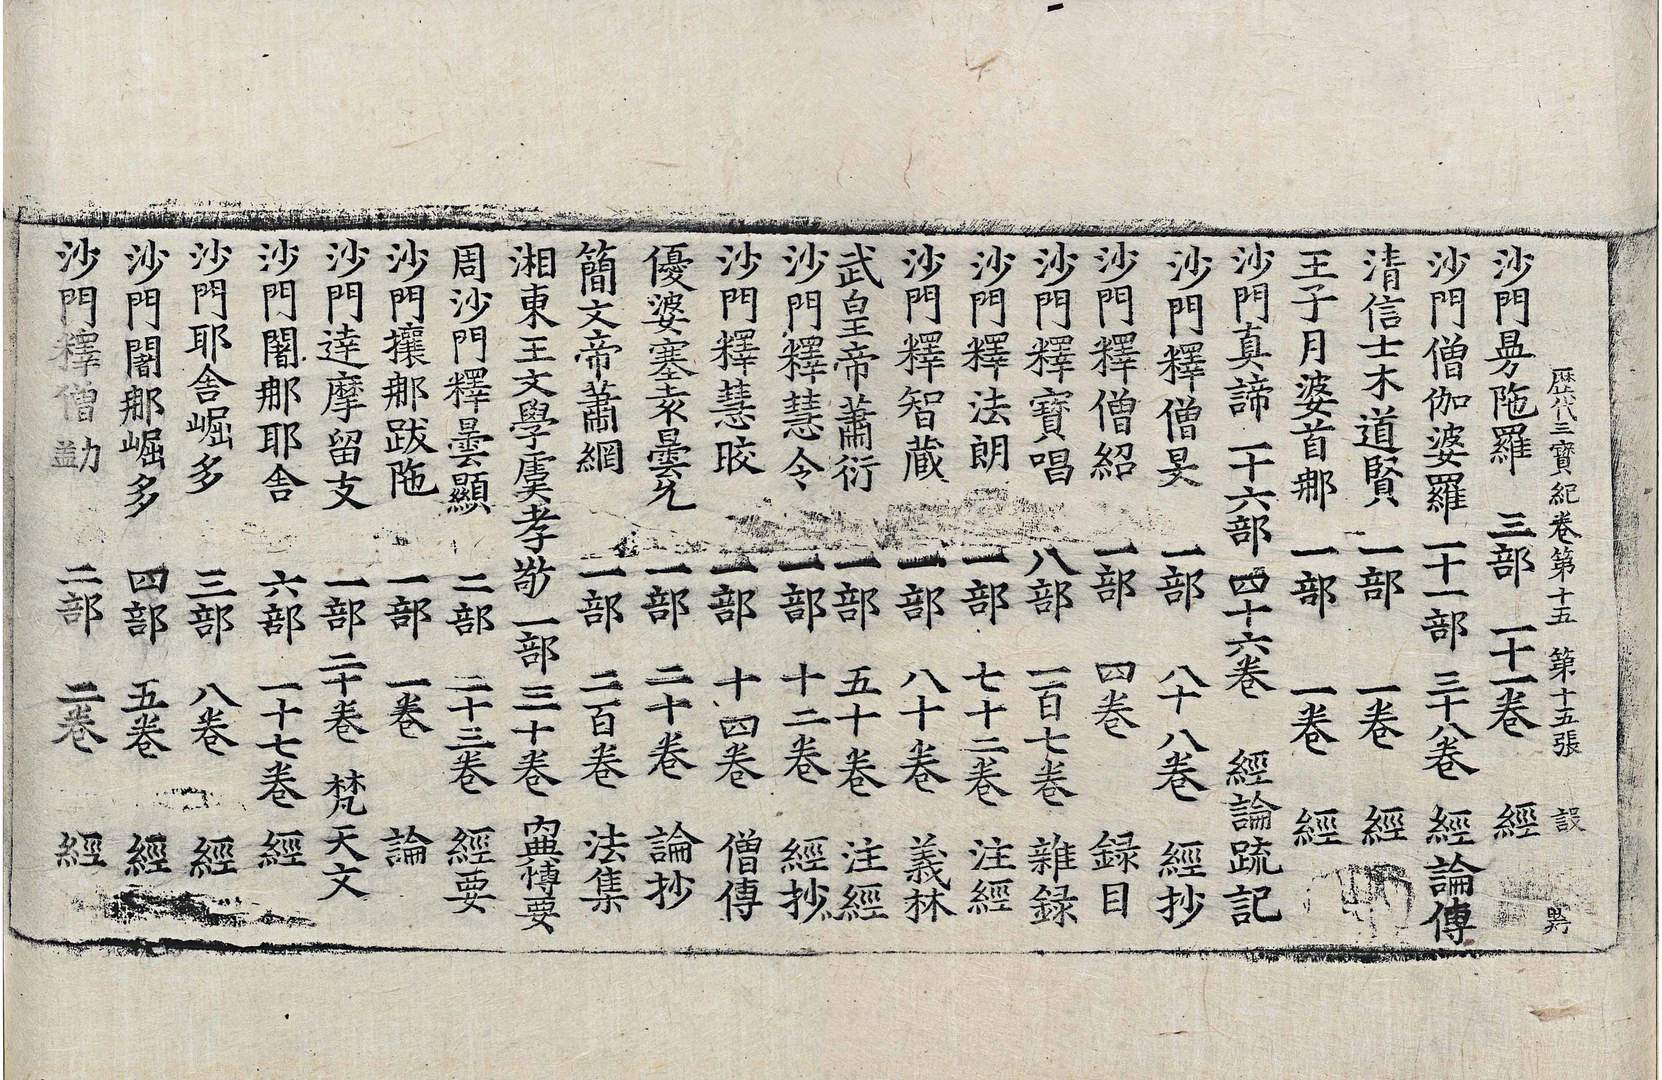 歷代三寶紀卷第十五 第十五張 設
沙門曼陁羅 三部 一十一卷 經
沙門僧伽婆羅 一十一部 三十八卷 經論傳
清信士木道賢 一部 一卷 經
王子月婆首那 一部 一卷 經
沙門真諦 一十六部 四十六卷 經論疏記
沙門釋僧旻 一部 八十八卷 經抄
沙門釋僧紹 一部 四卷 録目
沙門釋寶唱 八部 一百七卷 雜録
沙門釋法朗 一部 七十二卷 注經
沙門釋智藏 一部 八十卷 義林
武皇帝蕭衍 一部 五十卷 注經
沙門釋慧令 一部 十二卷 經抄
沙門釋慧皎 一部 十四卷 僧傳
優婆塞袁曇允 一部 二十卷 論抄
簡文帝蕭綱 一部 二百卷 法集
湘東王文學虞孝敬 一部 三十卷 內典博要
周沙門釋曇顯 二部 二十三卷 經要
沙門攘那跋陁 一部 一卷 論
沙門達摩留支 一部 二十卷 梵天文
沙門闍那耶舍 六部 一十七卷 經
沙門耶舍崛多 三部 八卷 經
沙門闍那崛多 四部 五卷 經
沙門釋僧勔 二部 二卷 經